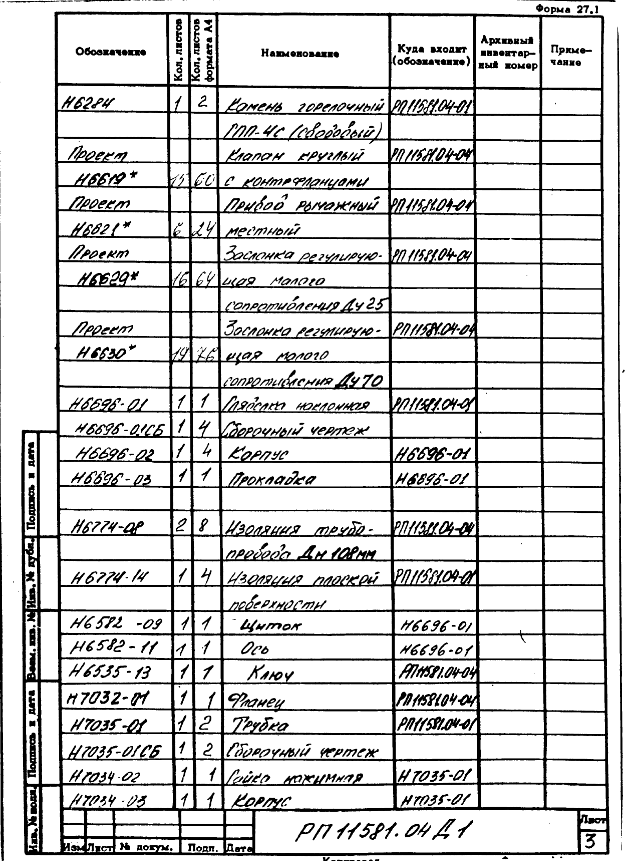 Форма 27.1
Обозначение Кол. листов Кол. листов формата А4 Наименование Куда входит (обозначение) Архивный инвентарный номер Примечание
Н6284 1 2 Камень горелочный РП11581.04-01
ГПП-4С (сводовый)
Проект Клапан круглый РП11581.04-04
Н6619* 15 60 с контрфланцами
Проект Привод рычажный РП11581.04-01
Н6621* 6 24 местный
Проект Заслонка регулирую- РП11581.04-04
Н6629* 16 64 щая малого
сопротивления Ду 25
Проект Заслонка регулирую- РП11581.04-04
Н6630* 19 76 щая малого
сопротивления Ду 70
Н6696-01 1 1 Гляделка наклонная РП11581.04-01
Н6696-01СБ 1 4 Сборочный чертеж
Н6696-02 1 4 Корпус Н6696-01
Н6696-03 1 1 Прокладка Н6696-01
Н6774-08 2 8 Изоляция трубо- РП11581.04-04
провода Дн 108мм
Н6774-14 1 4 Изоляция плоской РП11581.04-01
поверхности
Н6582-09 1 1 Щиток Н6696-01
Н6582-11 1 1 Ось Н6696-01
Н6535-13 1 1 Ключ РП11581.04-04
Н7032-01 1 1 Фланец РП11581.04-04
Н7035-01 1 2 Трубка РП11581.04-01
Н7035-01СБ 1 2 Сборочный чертеж
Н7034-02 1 1 Гайка нажимная Н7035-01
Н7034-03 1 1 Корпус Н7035-01
РП11581.04 Д1
Лист
3
Изм Лист № докум. Подп. Дата
Инв. № подл. Подпись и дата Взам. инв. № Инв. № дубл. Подпись и дата